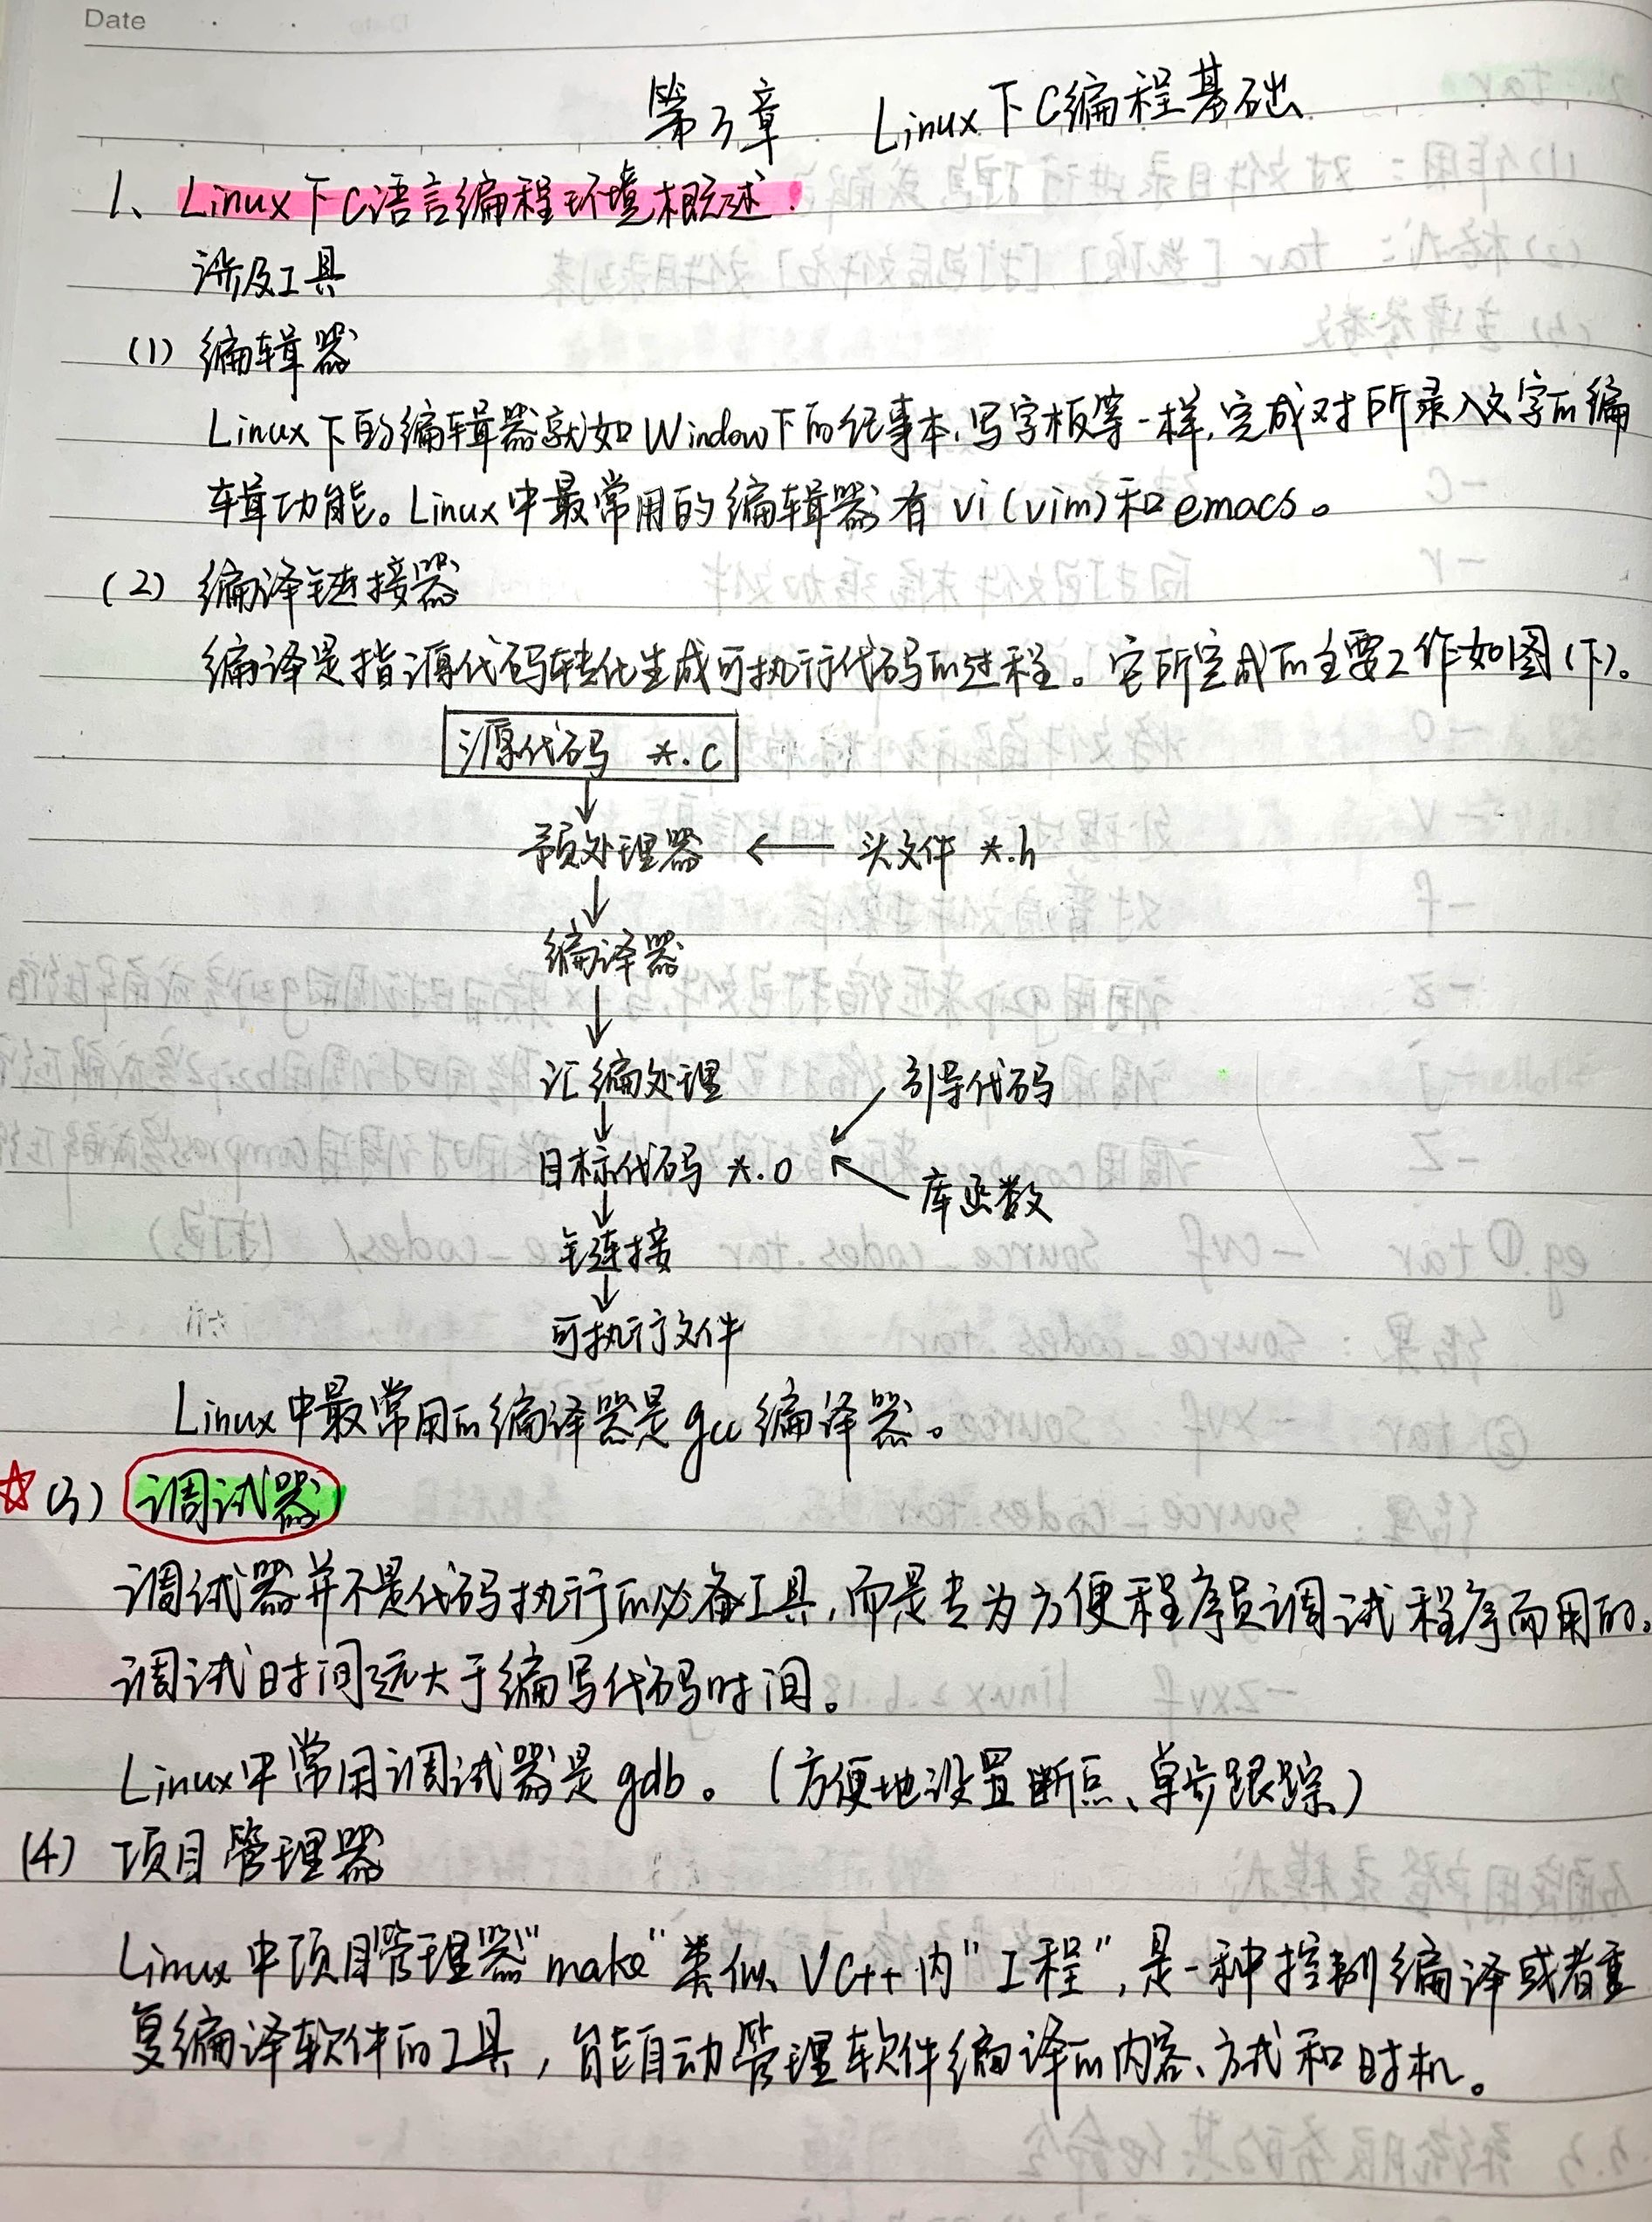 Date
第3章 Linux下C编程基础
1、Linux下C语言编程环境概述
涉及工具
(1) 编辑器
Linux下的编辑器就如Window下的纪事本,写字板等一样,完成对所录入文字的编
辑功能。Linux中最常用的编辑器有vi(vim)和emacs。
(2) 编译链接器
编译是指源代码转化生成可执行代码的过程。它所完成的主要工作如图(下)。
源代码 *.c
↓
预处理器 ← 头文件 *.h
↓
编译器
↓
汇编处理 ↙ 引导代码
↓
目标代码 *.o
↖ 库函数
↓
链接
↓
可执行文件
Linux中最常用的编译器是gcc编译器。
☆(3) 调试器
调试器并不是代码执行的必备工具,而是专为方便程序员调试程序而用的。
调试时间远大于编写代码时间。
Linux中常用调试器是gdb。(方便地设置断点、单步跟踪)
(4) 项目管理器
Linux中项目管理器"make"类似VC++内"工程",是一种控制编译或者重
复编译软件的工具,能自动管理软件编译的内容、方式和时机。